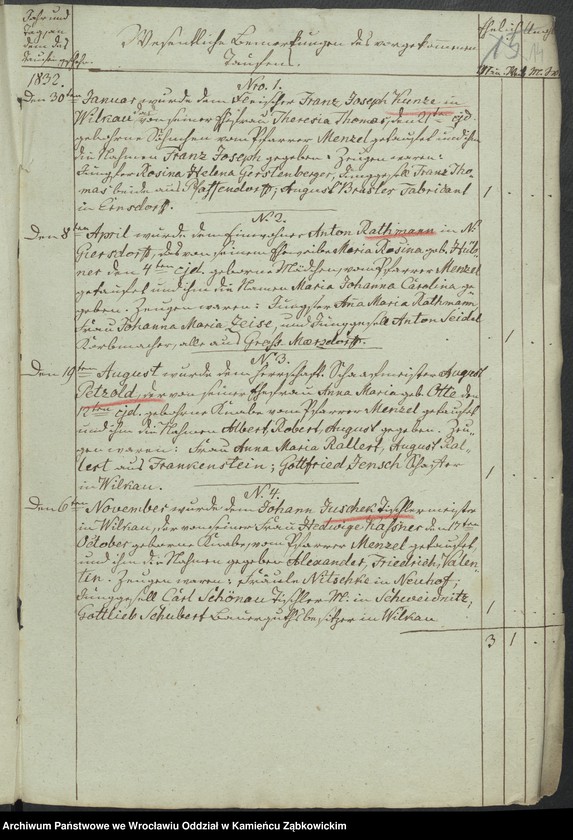 Jahr und
Tag an
dem das
Taufen geschehn.
Wesentliche Bemerkungen des vorgekommenen
Taufens.
ehelich
15
M. W. M. W.
1832.
Nro. 1.
Den 30ten Januar wurde dem Fleischer Franz Joseph Kunze in
Wilkau von seiner Ehefrau Theresia Thomas, den 21ten ejd.
geborene Söhnchen vom Pfarrer Menzel getauft und ihm
die Nahmen Franz Joseph gegeben. Zeugen waren:
Jungfer Rosina Helena Gerstenberger, Junggesell Franz Tho-
mas beide aus Pfaffendorff; August Brasler Fabrikant
in Ernsdorff. 1
N. 2.
Den 8ten April wurde dem Einwohner Anton Rathmann in N.
Giersdorff, das von seinem Eheweibe Maria Rosina geb. Hüb-
ner den 4ten ejd. geborne Mädchen, vom Pfarrer Menzel
getauft und ihm die Namen Maria Johanna Carolina ge-
geben. Zeugen waren: Jungfer Anna Maria Rathmann
Frau Johanna Maria Zeiss, und Junggesell Anton Seidel
Korbmacher, alle aus Groß Merzdorff. 1
N. 3.
Den 19ten August wurde dem herrschaftl. Schaafmeister August
Petzold, der von seiner Ehefrau Anna Maria geb. Otte den
ejd. geborne Knabe vom Pfarrer Menzel getauft
und ihm die Nahmen Albert, Robert, August gegeben. Zeu-
gen waren: Frau Anna Maria Rallert, August Ral-
lert aus Frankenstein; Gottfried Jensch Schäfer
in Wilkau. 1
N. 4.
Den 6ten November wurde dem Johann Juschek Tischlermeister
in Wilkau, der von seiner Frau Hedwige Hafsner den 17ten
October geborne Knabe, vom Pfarrer Menzel getauft,
und ihm die Nahmen gegeben Alexander, Friedrich, Valen-
tin. Zeugen waren: Fräulein Nitschke in Neuhof;
Junggesell Carl Schönau Tischler in Schweidnitz;
Gottlieb Schubert Bauerguthsbesitzer in Wilkau 1
3 1
Archiwum Państwowe we Wrocławiu Oddział w Kamieńcu Ząbkowickim